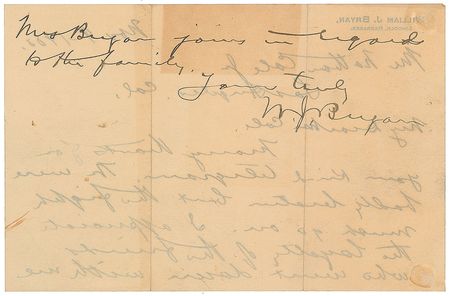 Mrs Bryan joins in regard
to the family.
Yours truly
W. J. Bryan
WILLIAM J. BRYAN,
LINCOLN, NEBRASKA.
My dear Mr Cole
Many thanks for
your kind telegram We were
badly beaten but the fight
must go on. I appreciate
the loyalty of the friends
who went down with me